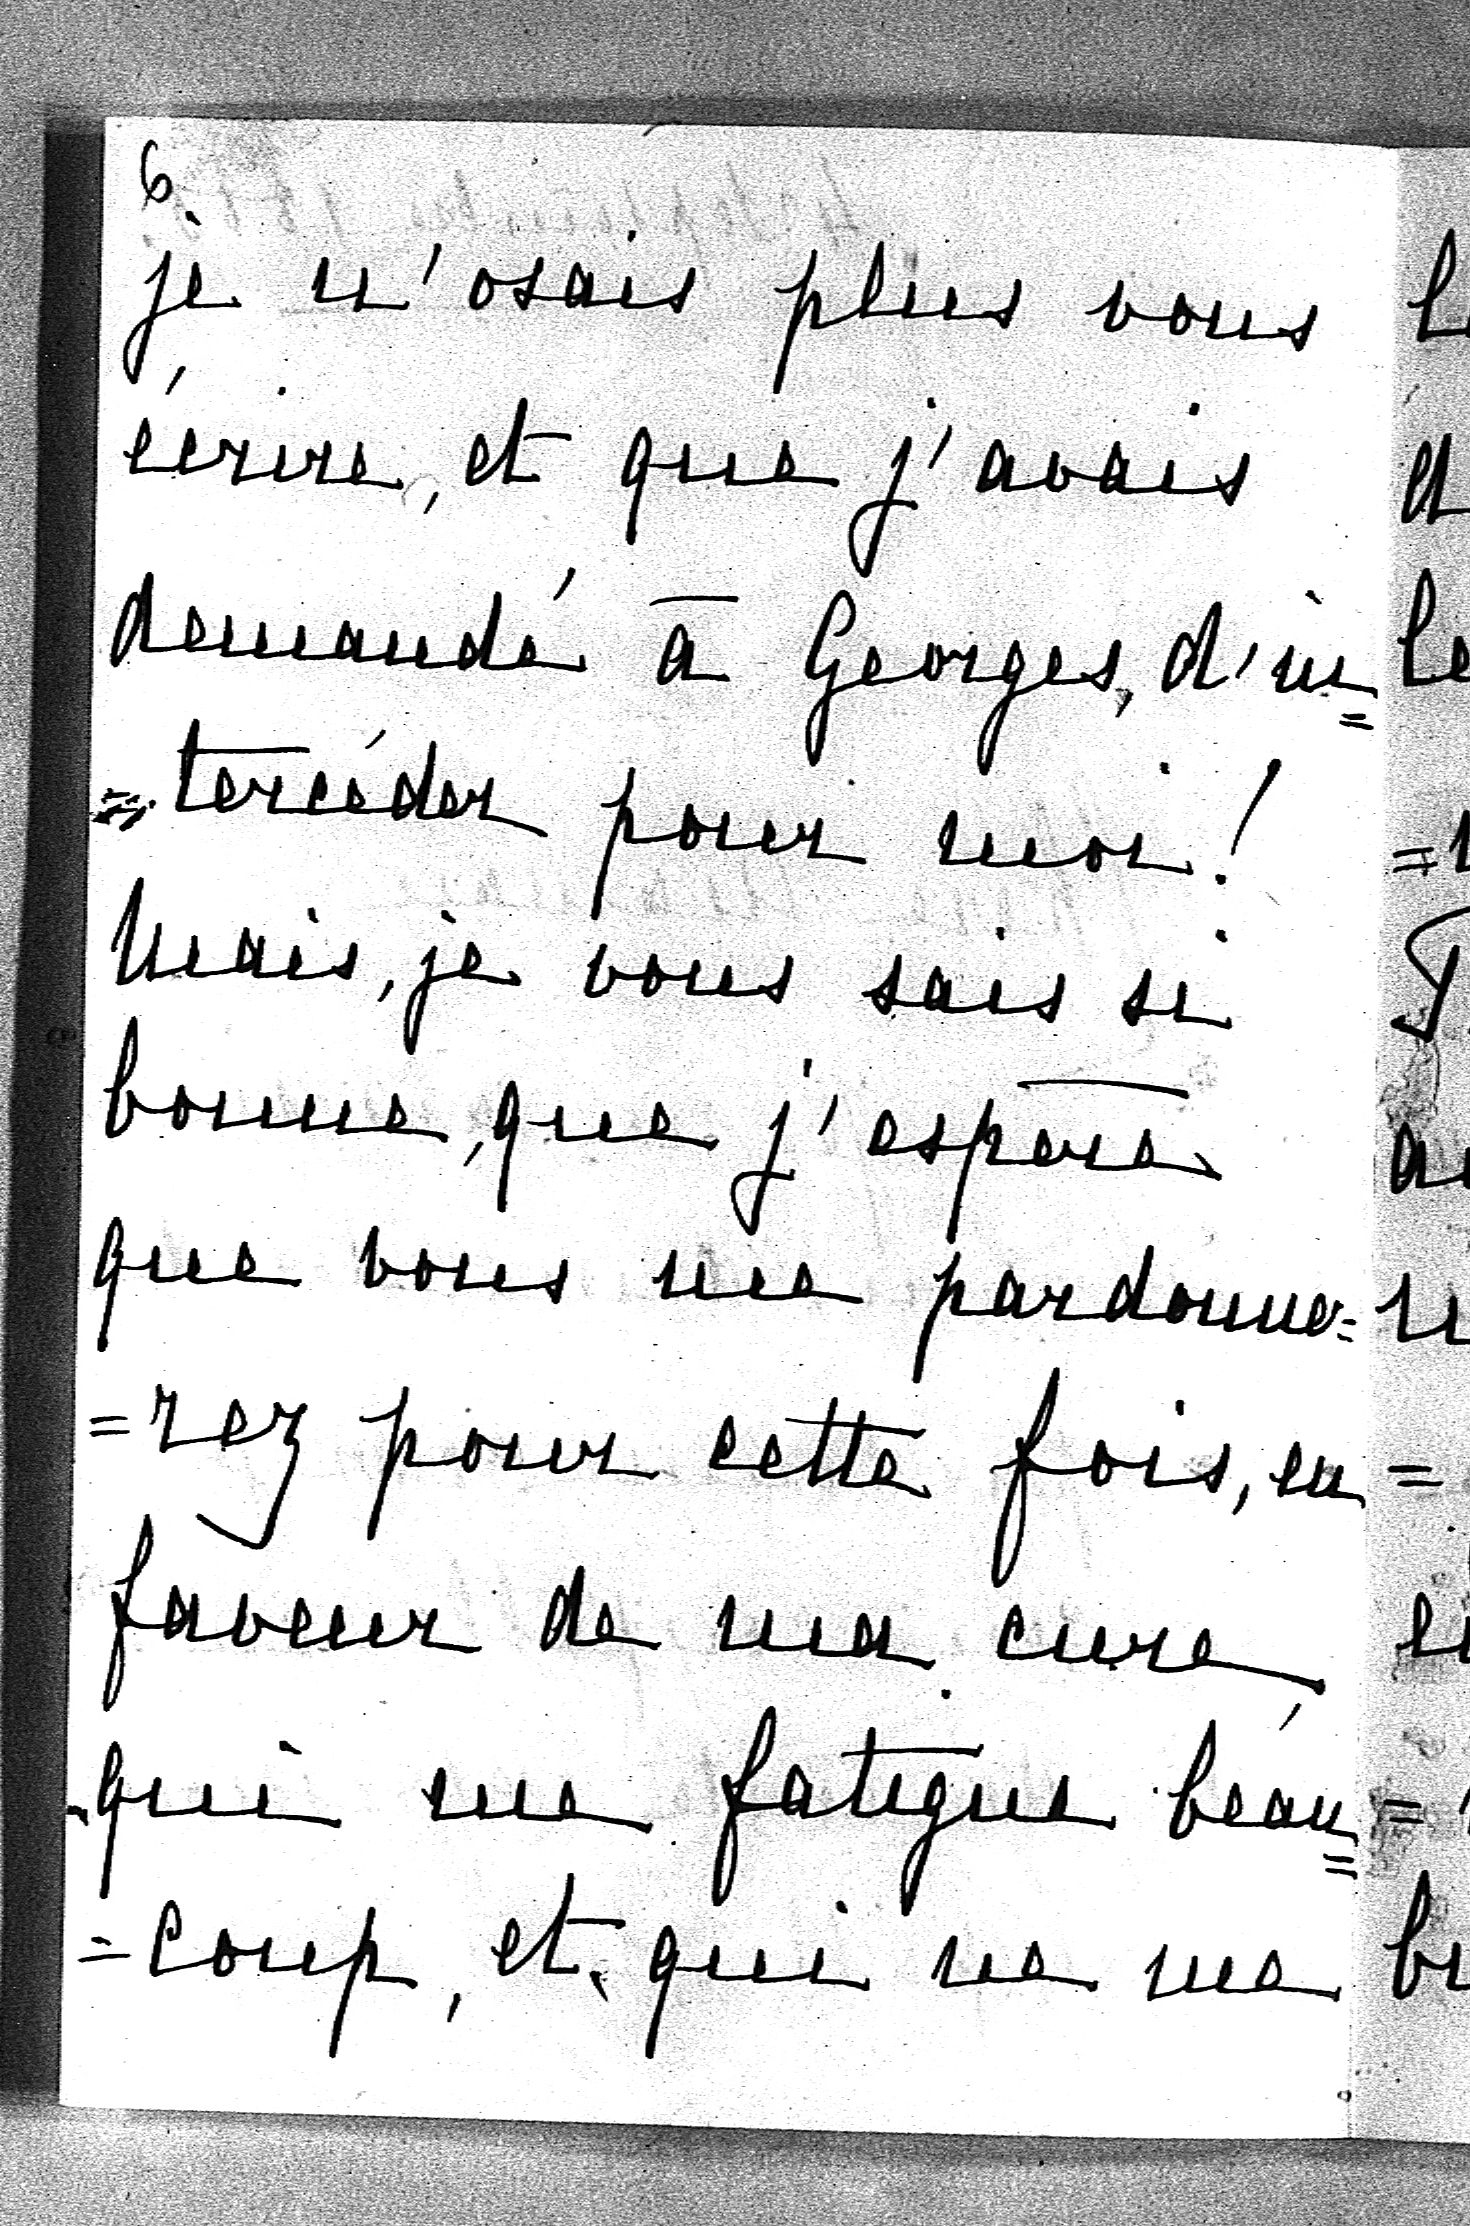 6.
je n'osais plus vous
écrire, et que j'avais
demandé à Georges, d'in=
=tercéder pour moi!
Mais, je vous sais si
bonne, que j'espère
que vous me pardonne=
=rez pour cette fois, en
faveur de ma cure,
qui me fatigue beau=
=coup, et, qui ne me